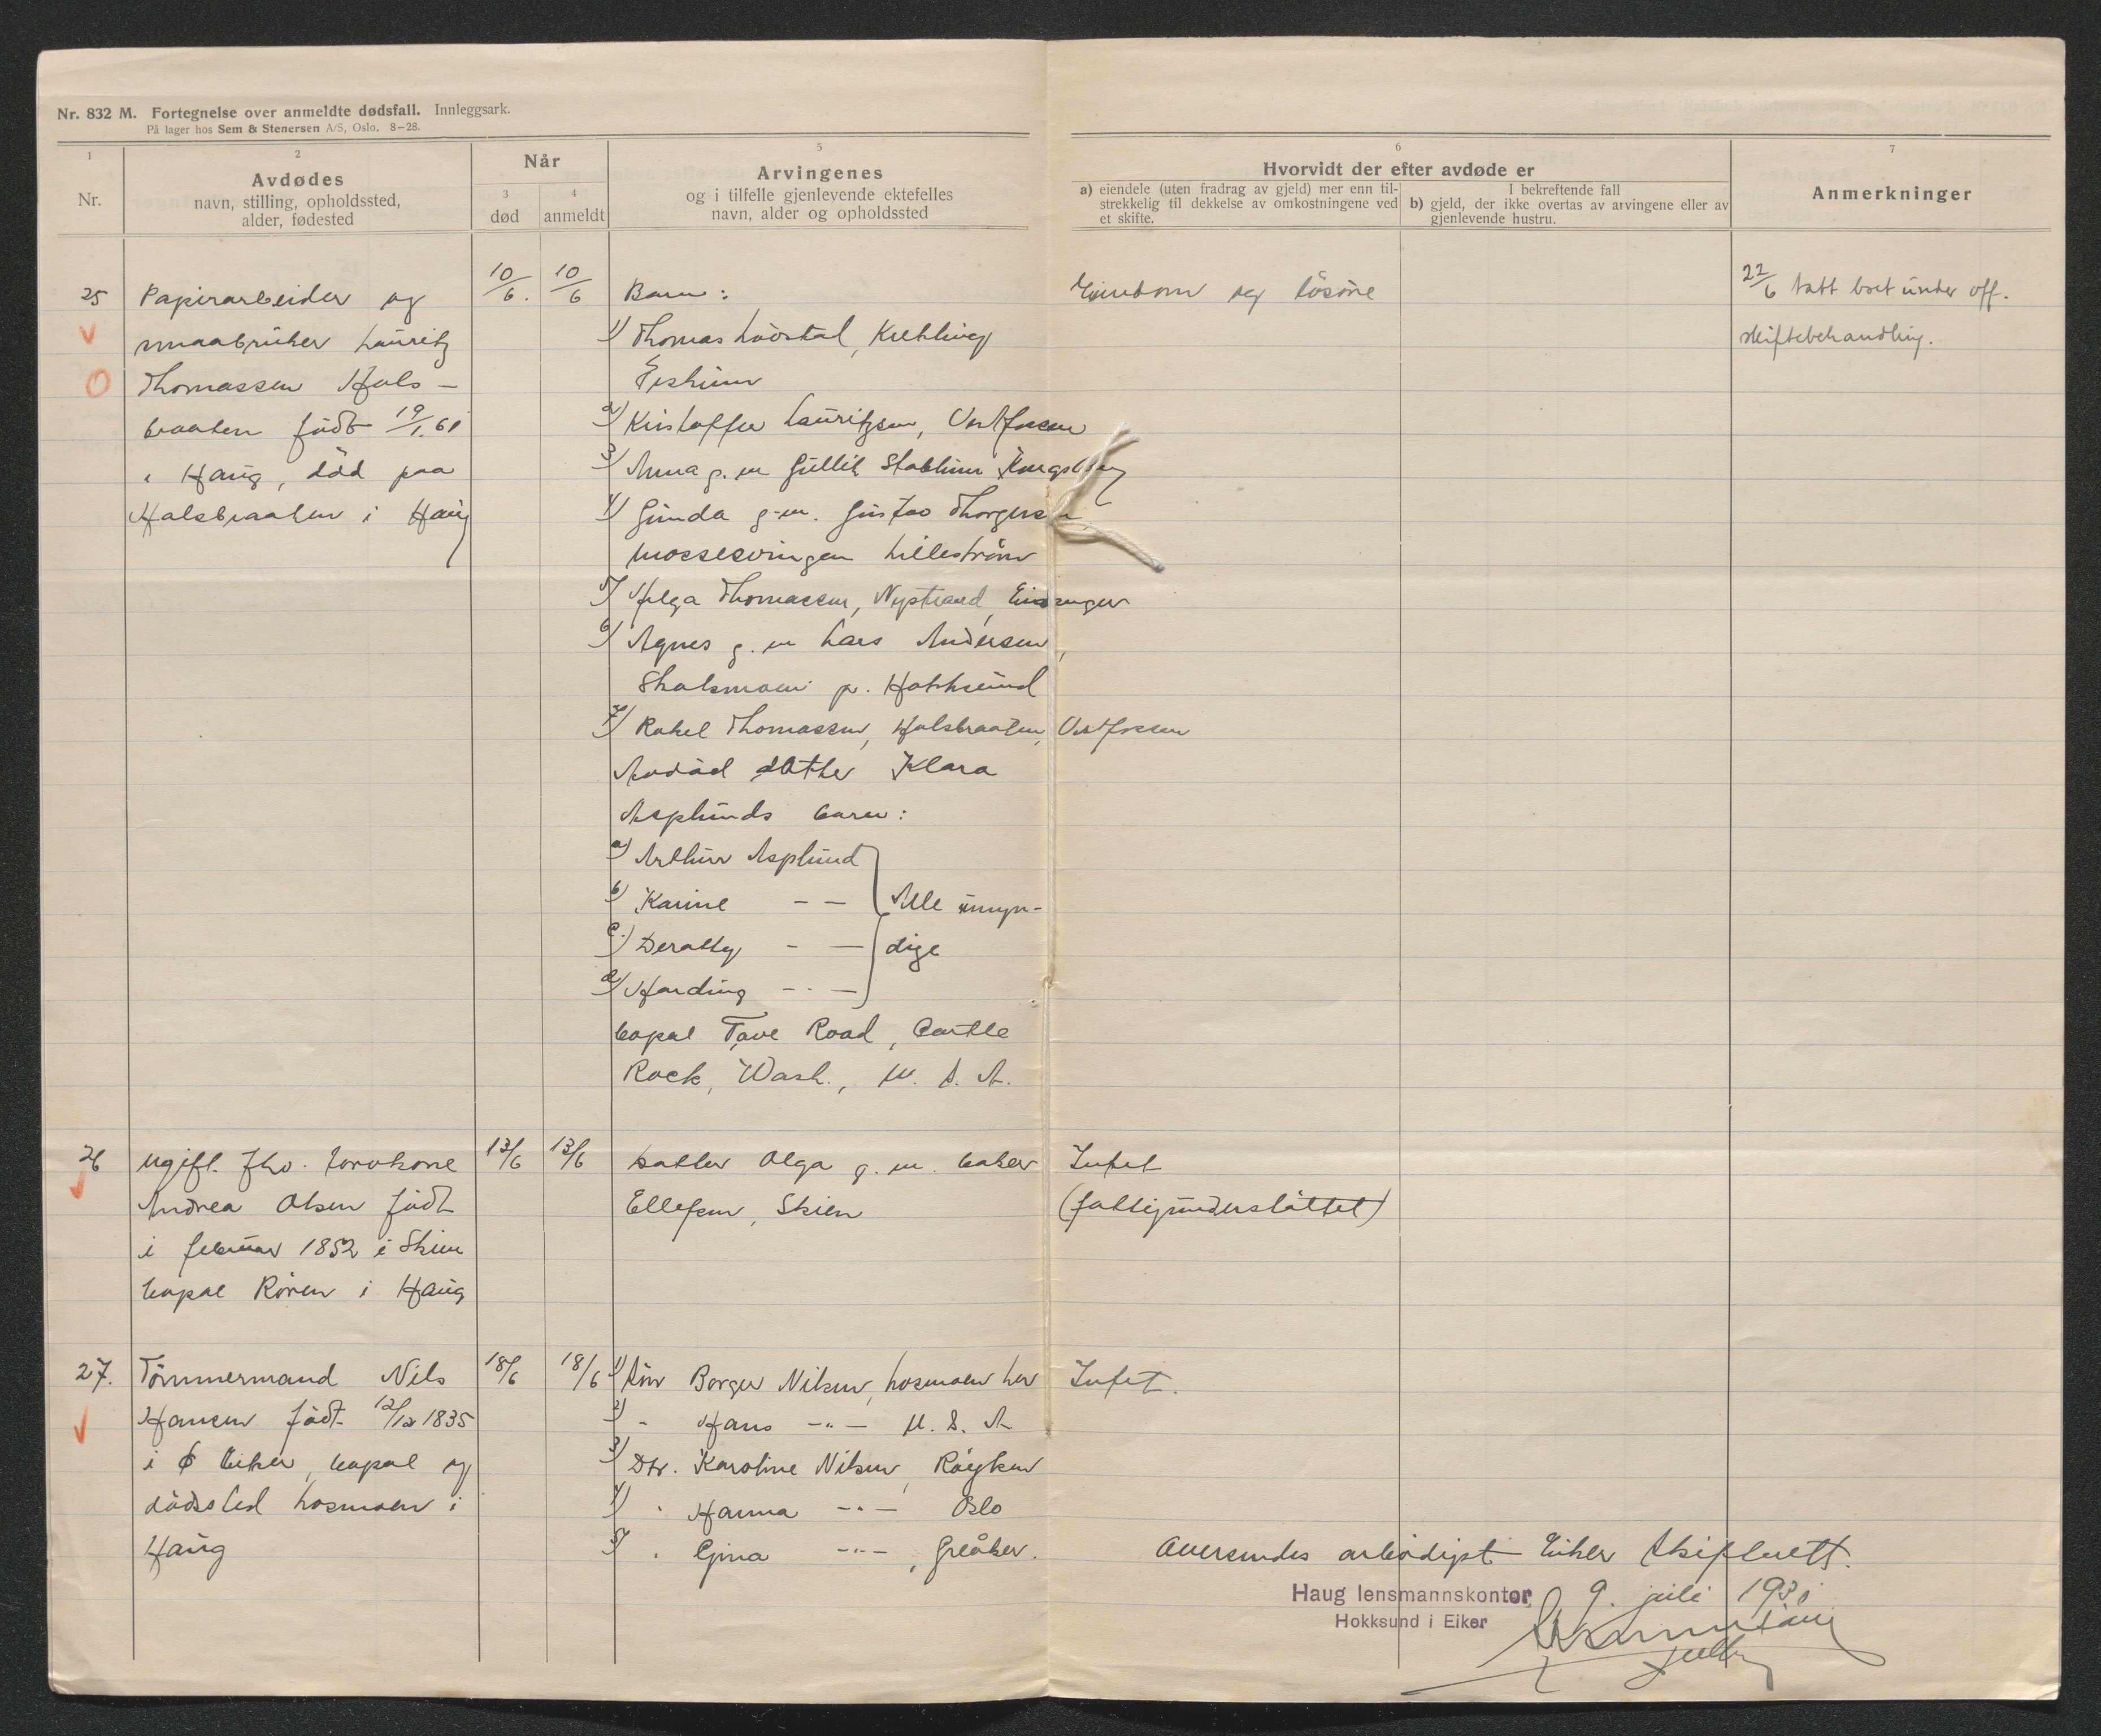 Nr. 832 M. Fortegnelse over anmeldte dødsfall. Innleggsark.
På lager hos Sem & Stenersen A/S, Oslo. 8—28.
1
Nr.
2
Avdødes
navn, stilling, opholdssted,
alder, fødested
Når
3
død
4
anmeldt
5
Arvingenes
og i tilfelle gjenlevende ektefelles
navn, alder og opholdssted
6
Hvorvidt der efter avdøde er
a) eiendele (uten fradrag av gjeld) mer enn til-
strekkelig til dekkelse av omkostningene ved
et skifte.
I bekreftende fall
b) gjeld, der ikke overtas av arvingene eller av
gjenlevende hustru.
7
Anmerkninger
25
Papirarbeider og
smaabruker Lauritz
Thomassen Hals-
braaten født 19/1.61
i Haug, död paa
Halsbraaten i Haug
10/6.
10/6
Barn:
1) Thomas Lövstal, Krekling
2) Kristoffer Lauritzsen, Vestfossen
3) Anna g. m Gullik Stablum Kongsberg
4) Gunda g. m. Gustav Thorgersen
Mossesvingen Lilleström
5) Helga Thomassen, Nystrand, Eidanger
6) Agnes g. m Lars Andersen,
Skalsmoen pr. Hokksund
7) Rakel Thomassen, Halsbraaten, Vestfossen
Avdöd datter Klara
Asplunds barn:
a) Arthur Asplund
b) Karine — — Alle umyn-
c.) Deratty - — dige
d) Harding - - —
bopæl Tove Road, Castle
Rock, Wash., U. S. A.
Eiendom og lösöre
22/6 tatt boet under off.
skiftebehandling.
26
ugift. fhv. tavskone
Andrea Olsen født
i februar 1852 i Skien
bopæl Rören i Haug
13/6
13/6
Datter Olga g. m. baker
Ellefsen, Skien
Intet
(fattigunderstöttet)
27.
Tömmermand Nils
Hansen født 12/12 1835
i Ø Eiker, bopæl og
dödssted Losmoen i
Haug
18/6
18/6
1) Sön Borger Nilsen, Losmoen her
2) - Hans -"- U. S. A
3) Dtr. Karoline Nilsen, Röyken
4) " Hanna -"- Oslo
5) " Gina -"-, Greåker.
Intet.
Oversendes arbödigst Eiker Skifterett.
Haug lensmannskontor, 9. juli 1930
Hokksund i Eiker